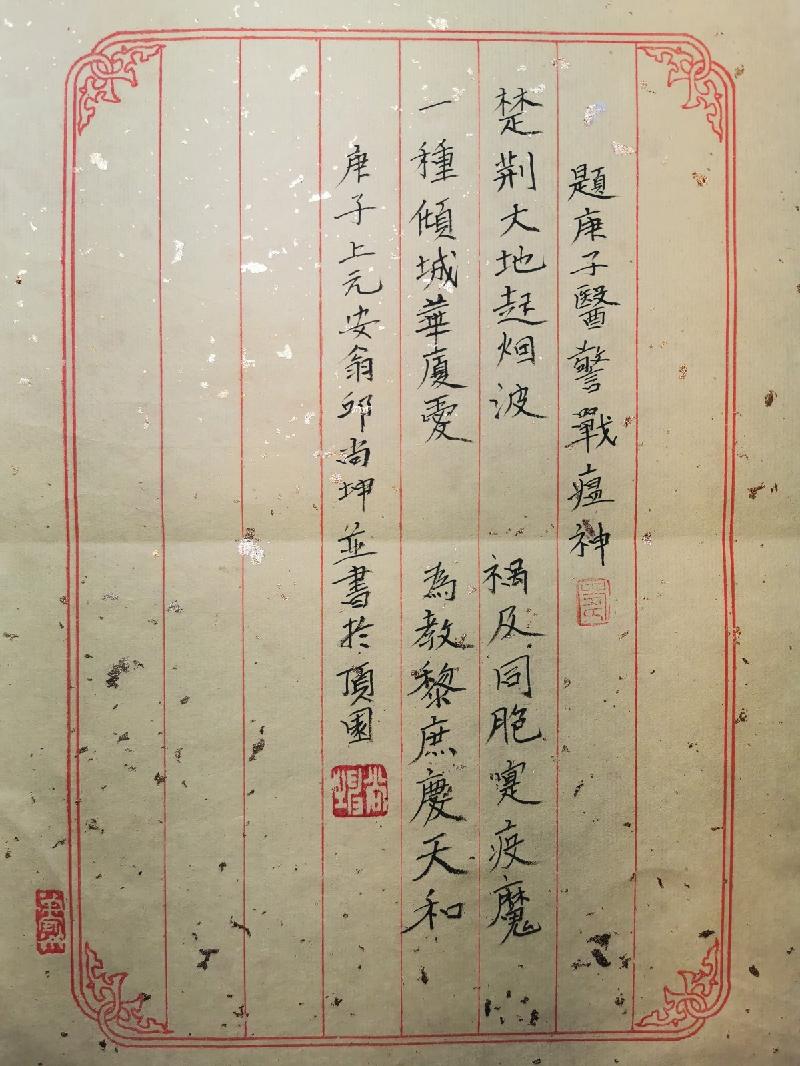 題庚子醫警戰瘟神
楚荆大地起烟波 禍及同胞寔疫魔
一種傾城華廈愛 為教黎庶慶天和
庚子上元安翁邱尚坤並書於頂園